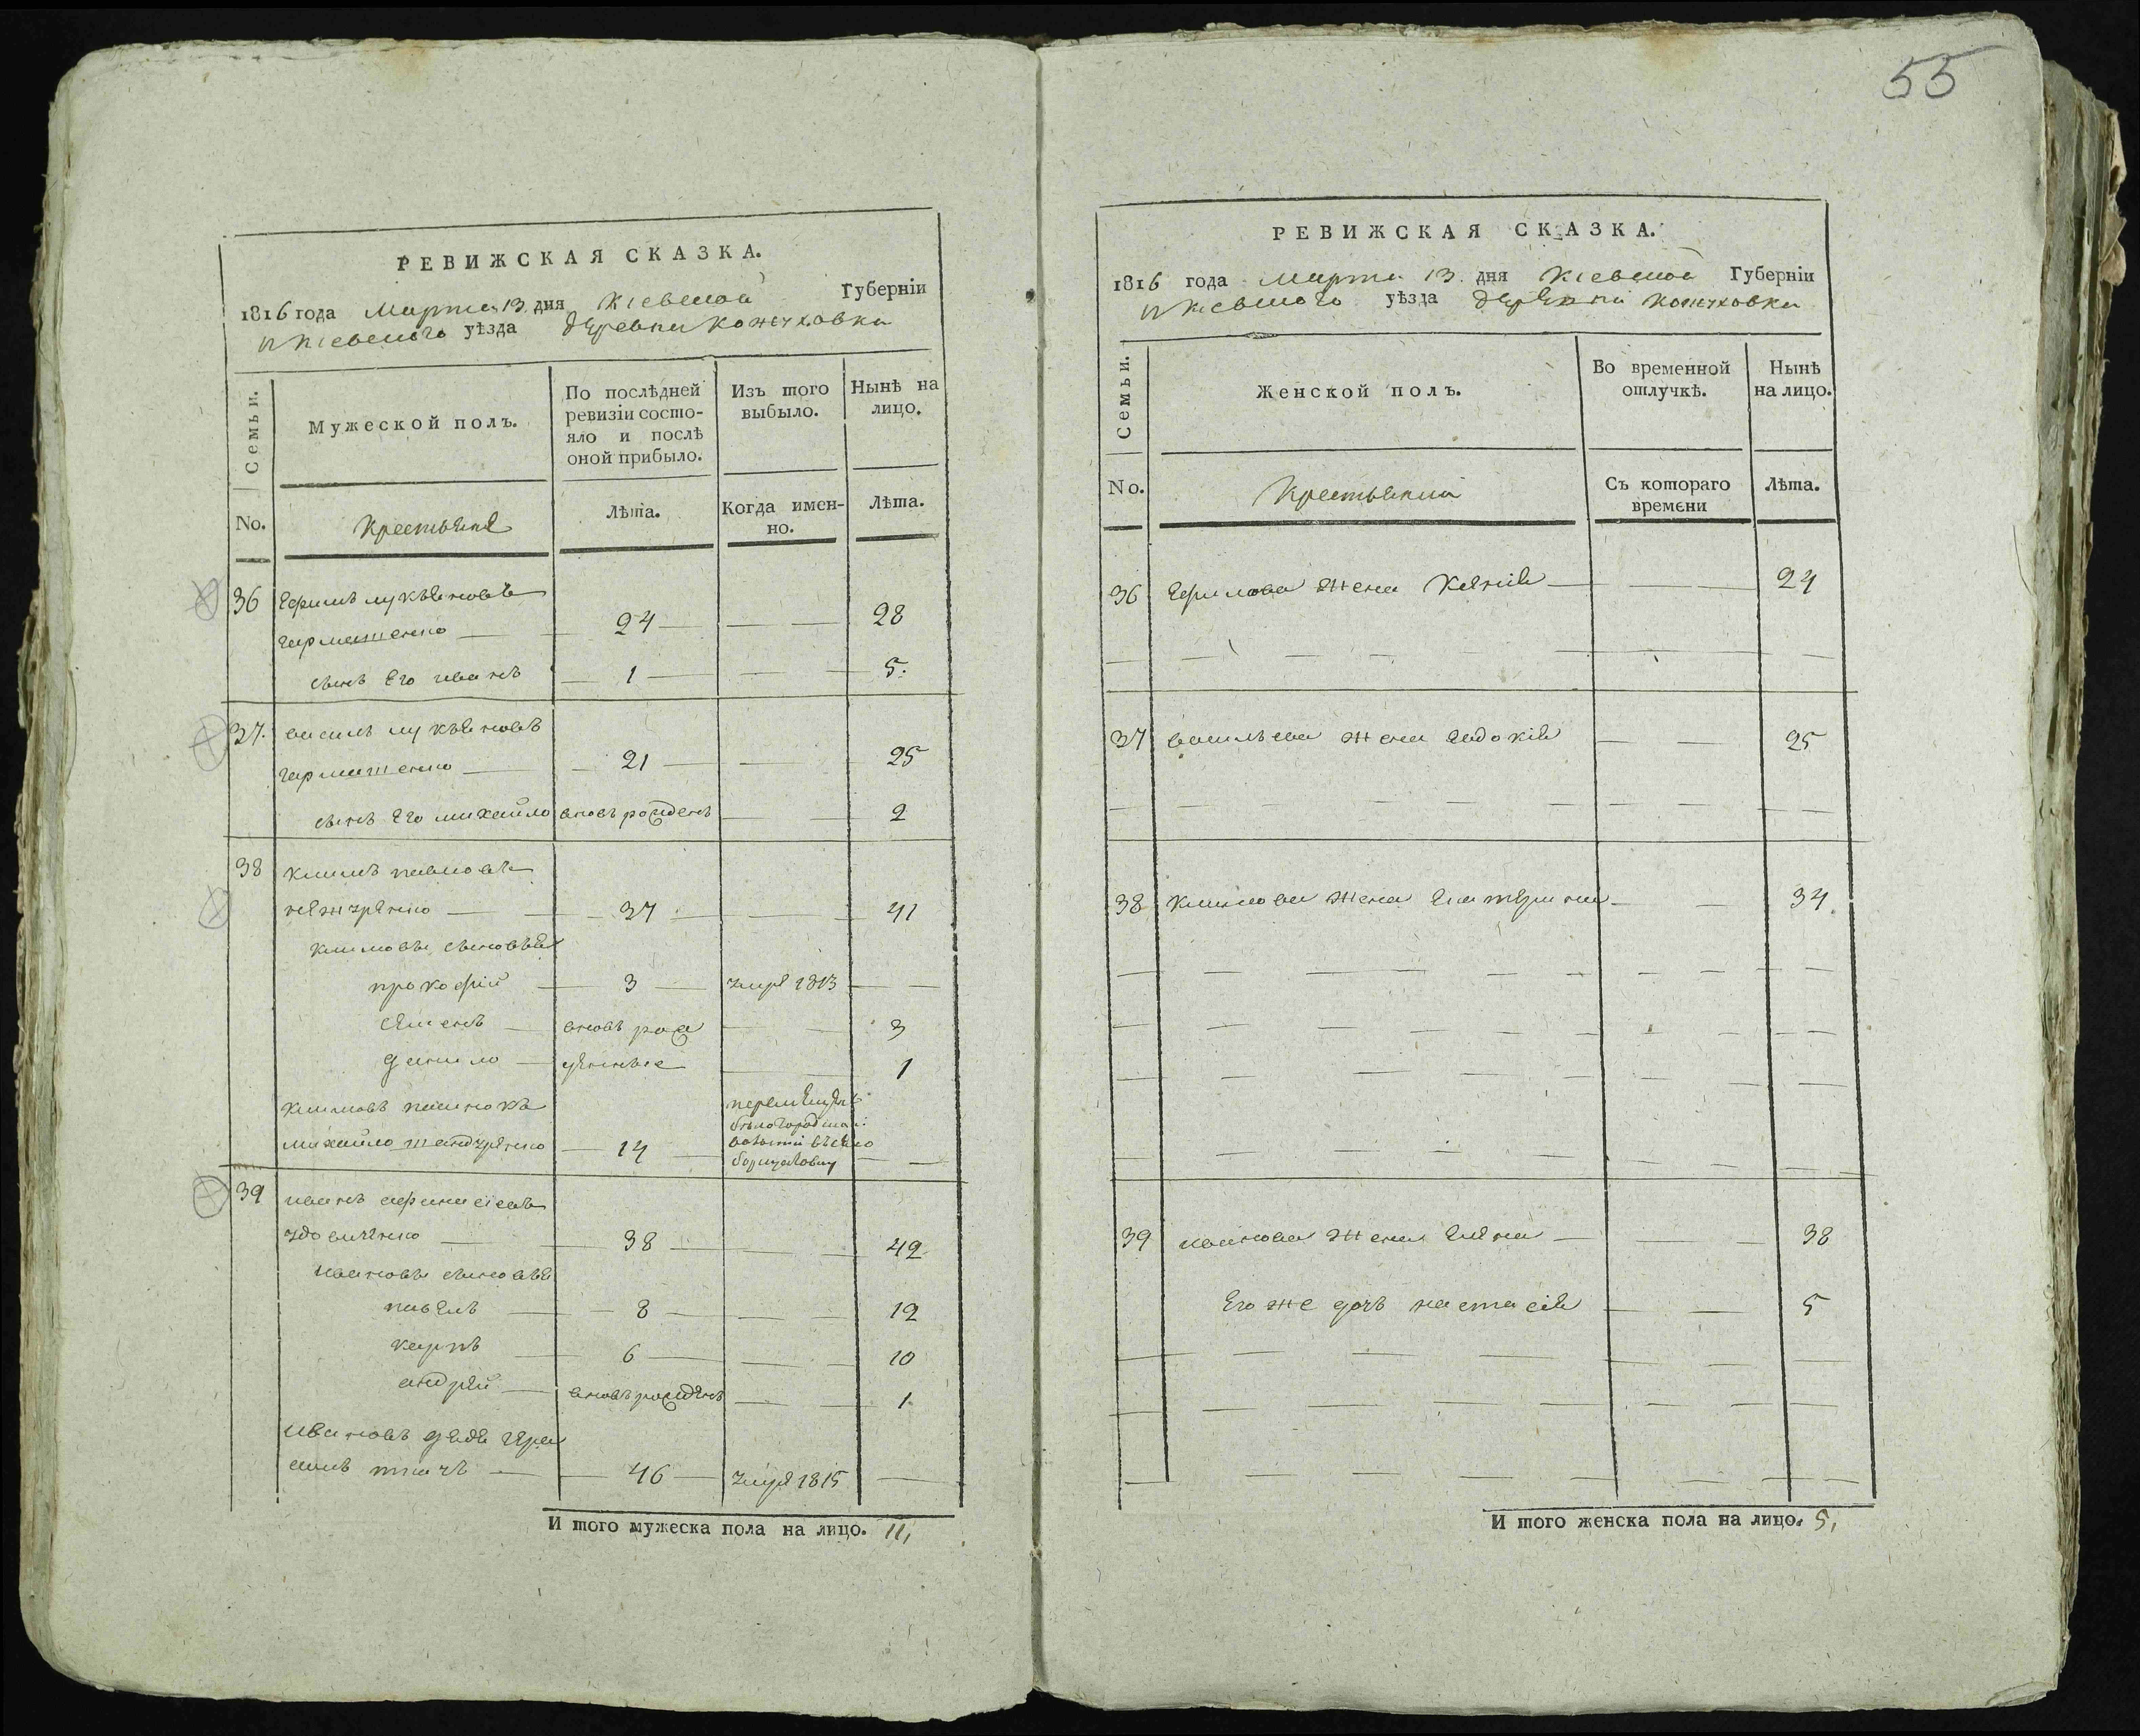 55
РЕВИЖСКАЯ СКАЗКА.
1816 года Марта 13 дня Кіевской Губерніи
и Кіевского уѣзда деревни Кожуховки
Семьи.
Мужеской полъ.
По послѣдней ревизіи состо-
яло и послѣ
оной прибыло.
Изъ того
выбыло.
Нынѣ на
лицо.
No.
Крестьяне
Лѣта.
Когда имен-
но.
Лѣта.
36 Ефимъ лукъяновъ
гарматенко — 24 — — — 28
сынъ Его иванъ — 1 — — 5.
37. василь лукъяновъ
гарматенко — 21 — — 25
сынъ Его михайло вновь рожденъ — 2
38 климъ павловъ
— 37 — — 41
климовы сыновья
прокофій — 3 — умре 1813 — —
семенъ — вновь рож — — 3
данило — денные — — 1
климовъ пасынокъ
михайло — 14 —
— —
39 иванъ афанасіевъ
— 38 — — 42
ивановы сыновья
павелъ — 8 — — — 12
карпъ — 6 — — — 10
андрей — вновь рожденъ — — 1
ивановъ дядя гера
симъ ткачъ — 46 — умре 1815 —
И того мужеска пола на лицо. 11,
РЕВИЖСКАЯ СКАЗКА.
1816 года Марта 13 дня Кіевской Губерніи
и Кіевского уѣзда деревни кожуховки
Семьи.
Женской полъ.
Во временной
отлучкѣ.
Нынѣ
на лицо.
No.
Крестьянки
Съ котораго
времени
Лѣта.
36 Ефимова жена Ксенія — — — 24
37 васильева жена Евдокія — — 25
38 климова жена Екатерина — — 34
39 иванова жена Елена — — — 38
Его же дочь настасія — — 5
И того женска пола на лицо. 5,